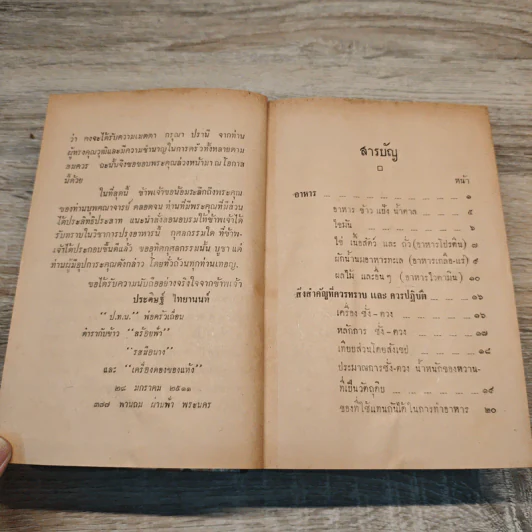 ว่า คงจะได้รับความเมตตา กรุณา ปรานี จากท่าน
ผู้ทรงคุณวุฒิและมีความชำนาญในการครัวทั้งหลายตาม
สมควร ฉะนั้นจึงขอขอบพระคุณล่วงหน้ามา ณ โอกาส
นี้ด้วย
ในที่สุดนี้ ข้าพเจ้าขอน้อมระลึกถึงพระคุณ
ของท่านบุพคณาจารย์ ตลอดจน ท่านที่มีพระคุณที่มีส่วน
ได้ประสิทธิ์ประสาท แนะนำสั่งสอนอบรมให้ข้าพเจ้าได้
รับทราบในวิชาการปรุงอาหารนี้ กุศลกรรมใด ที่ข้าพ-
เจ้าได้ประกอบขึ้นดีแล้ว ขออุทิศกุศลกรรมนั้น บูชา แด่
ท่านผู้มีอุปการะคุณดังกล่าว โดยทั่วกันทุกท่านเทอญ.
ขอได้รับความนับถืออย่างจริงใจจากข้าพเจ้า
ประดิษฐ์ วิทยานนท์
"ป.ท.น." พ่อครัวเถื่อน
ตำรากับข้าว "อร่อยฟ้า"
"รสมือนาง"
และ "เครื่องดองของแห้ง"
๒๘ มกราคม ๒๕๑๑
๓๘๗ พานถม ผ่านฟ้า พระนคร
สารบัญ
หน้า
อาหาร ๑
อาหาร ข้าว แป้ง น้ำตาล ๕
ไขมัน ๖
ไข่ เนื้อสัตว์ และ ถั่ว (อาหารโปรตีน) ๗
ผักน้ำนมอาหารทะเล (อาหารเกลือแร่) ๙
ผลไม้ และอื่นๆ (อาหารไวตามิน) ๑๐
สิ่งสำคัญที่ควรทราบ และ ควรปฏิบัติ ๑๖
เครื่อง ชั่ง - ตวง ๑๖
หลักการ ชั่ง - ตวง ๑๗
เทียบส่วนโดยสังเขป ๑๘
ประมาณการชั่ง-ตวง น้ำหนักของหวาน-
ที่เป็นวัตถุดิบ ๑๙
ของที่ใช้แทนกันได้ ในการทำอาหาร ๒๐